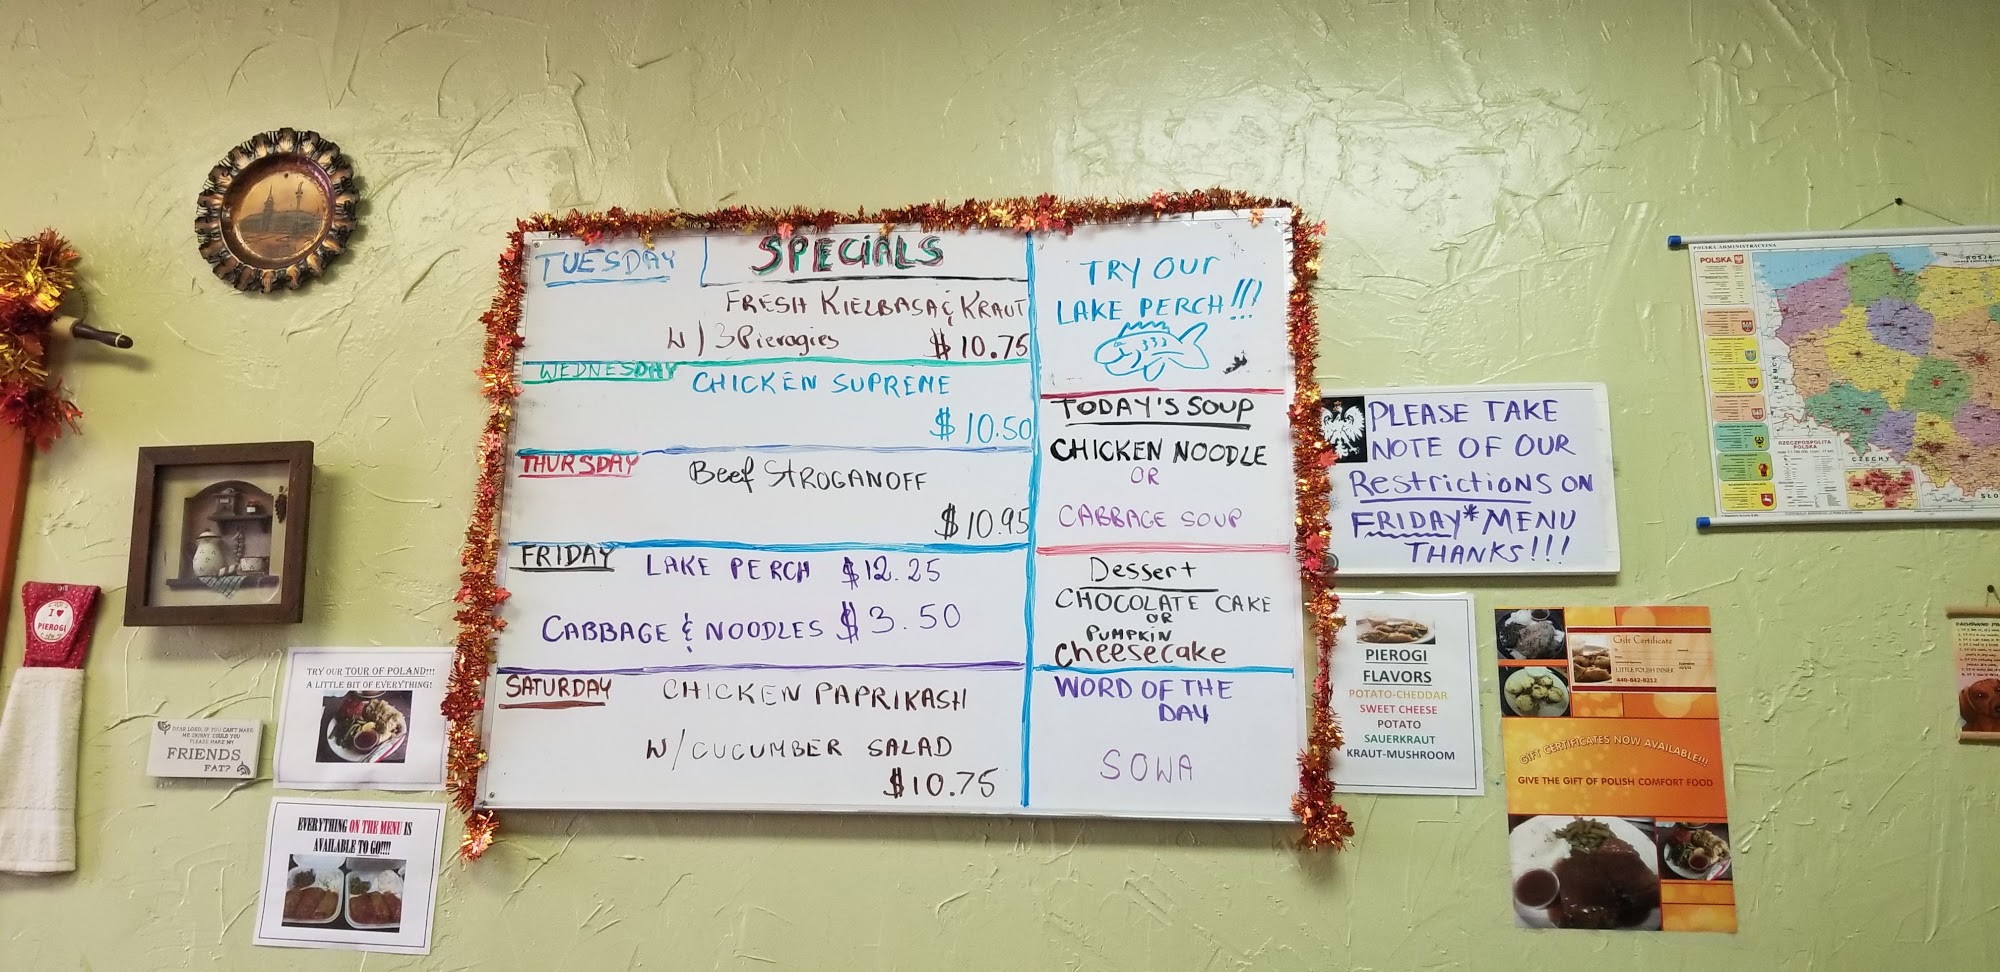 SPECIALS
TUESDAY
FRESH KIELBASA & KRAUT
W/ 3 Pierogies $10.75
WEDNESDAY
CHICKEN SUPREME
$10.50
THURSDAY
Beef STROGANOFF
$10.95
FRIDAY
LAKE PERCH $12.25
CABBAGE & NOODLES $3.50
SATURDAY
CHICKEN PAPRIKASH
W/CUCUMBER SALAD
$10.75
TRY OUr
LAKE PERCH!!!
TODAY'S SOUP
CHICKEN NOODLE
OR
CABBAGE SOUP
Dessert
CHOCOLATE CAKE
OR
PUMPKIN
Cheesecake
WORD OF THE
DAY
SOWA
PLEASE TAKE
NOTE OF OUR
Restrictions ON
FRIDAY* MENU
THANKS!!!
PIEROGI
FLAVORS
POTATO-CHEDDAR
SWEET CHEESE
POTATO
SAUERKRAUT
KRAUT-MUSHROOM
Gift Certificate
LITTLE POLISH DINER
440-842-8212
GIFT CERTIFICATES NOW AVAILABLE!!!
GIVE THE GIFT OF POLISH COMFORT FOOD
POLSKA ADMINISTRACYJNA
POLSKA
ROSJA
NIEMCY
CZECHY
RZECZPOSPOLITA
POLSKA
I ♥
PIEROGI
TRY OUR TOUR OF POLAND!!!
A LITTLE BIT OF EVERYTHING!
DEAR LORD, IF YOU CAN'T MAKE
ME SKINNY, COULD YOU
PLEASE MAKE MY
FRIENDS
FAT?
EVERYTHING ON THE MENU IS
AVAILABLE TO GO!!!!